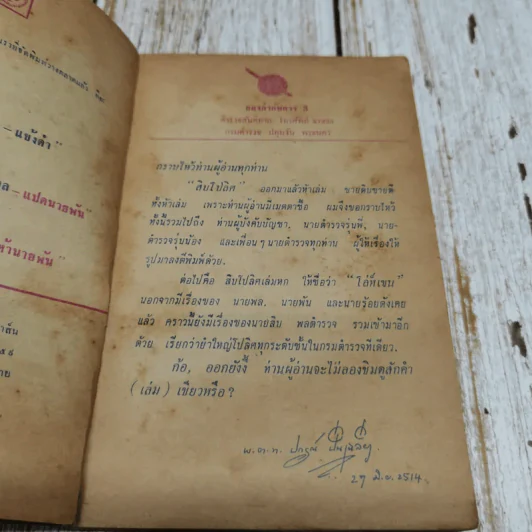 - แข้งดำ"
- แปดนายพัน"
นายพัน"
กองกำกับการ 3
กรมตำรวจ ปทุมวัน พระนคร
กราบไหว้ท่านผู้อ่านทุกท่าน
"สิบโปลิศ" ออกมาแล้วห้าเล่ม ขายดิบขายดี
ทั้งห้าเล่ม เพราะท่านผู้อ่านมีเมตตาซื้อ ผมจึงขอกราบไหว้
ทั้งนี้รวมไปถึง ท่านผู้บังคับบัญชา, นายตำรวจรุ่นพี่, นาย-
ตำรวจรุ่นน้อง และเพื่อนๆ นายตำรวจทุกท่าน ผู้ให้เรื่องให้
รูปมาลงตีพิมพ์ด้วย.
ต่อไปคือ สิบโปลิศเล่มหก ให้ชื่อว่า "โอ้ที่เขน"
นอกจากมีเรื่องของ นายพล, นายพัน และนายร้อยดังเคย
แล้ว คราวนี้ยังมีเรื่องของนายสิบ พลตำรวจ รวมเข้ามาอีก
ด้วย เรียกว่ายำใหญ่โปลิศทุกระดับชั้นในกรมตำรวจทีเดียว.
ก้อ, ออกยังงี้ ท่านผู้อ่านจะไม่ลองชิมดูสักคำ
(เล่ม) เชียวหรือ?
พ.ต.ท.
27 มิ.ย. 2514